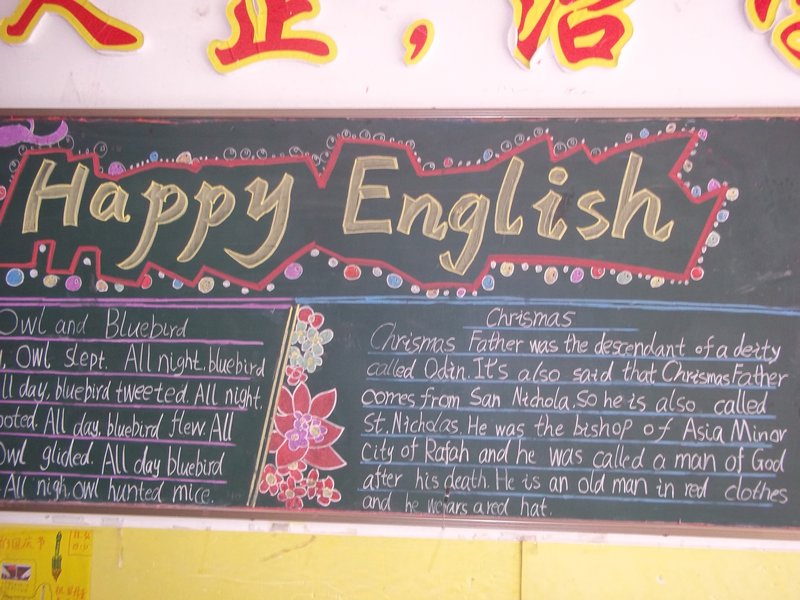 正,
Happy English
Owl and Bluebird
Owl slept. All night, bluebird
all day, bluebird tweeted. All night,
hooted. All day, bluebird flew. All
Owl glided. All day bluebird
All nigh, owl hunted mice.
Chrismas
Chrismas Father was the descendant of a deity
called Odin. It's also said that Chrismas Father
comes from San Nichola. So he is also called
St. Nicholas. He was the bishop of Asia Minor
city of Rafah and he was called a man of God
after his death. He is an old man in red clothes
and he wears a red hat.
国庆节